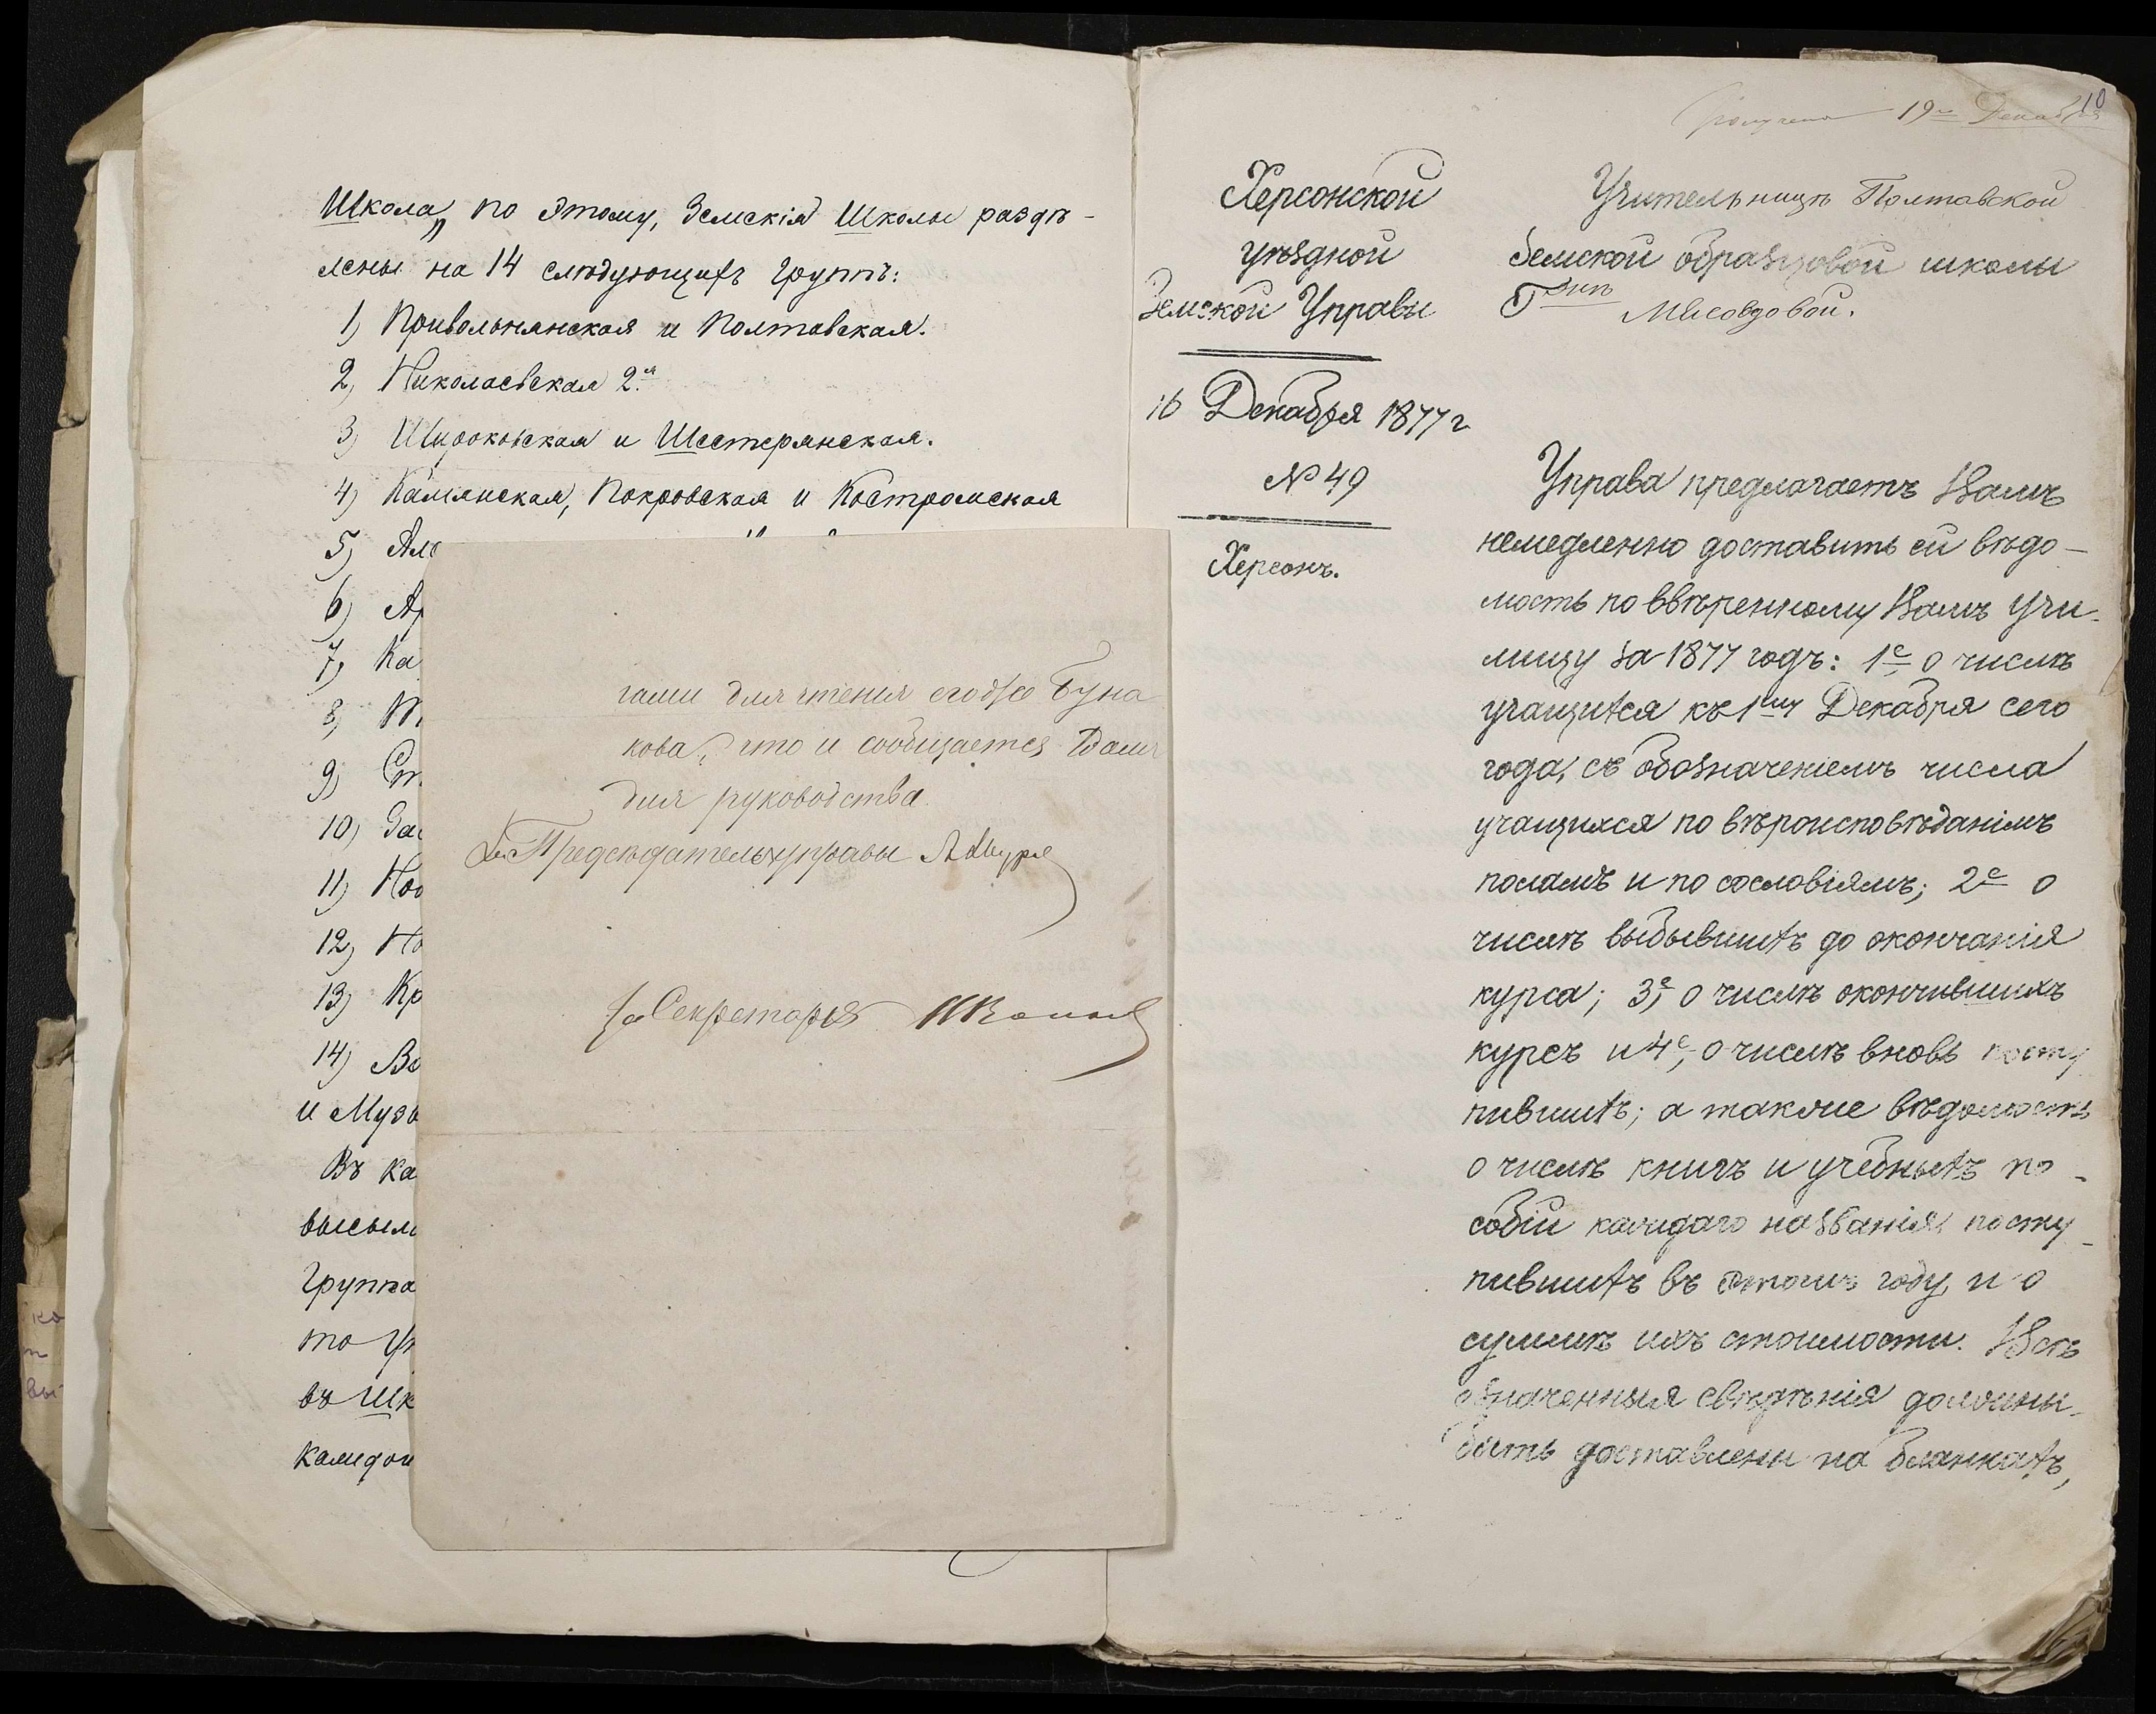 Школа„ по этому, Земскія Школы раздѣ-
лены на 14 слѣдующихъ группъ:
1) Привольнянская и Полтавская.
2) Николаевская 2я
3) Широковская и Шестерянская.
4) Камянская, Покровская и Костромская
5) Але
6) Ар
7) Ка
8)
9) Ст
10) Заг
11) Нов
12) Но
13) Кр
14) Во
и Музы
Въ ка
высыла
Группа
то
въ Шк
каждой
гами для чтенія егоже Буна
кова, что и сообщается Вамъ
для руководства.
Предсѣдатель управы
За Секретаря
Получено 19го Декабря
10
Херсонской
уѣздной
Земской Управы
16 Декабря 1877 г
№ 49
Херсонъ.
Учительницѣ Полтавской
земской образцовой школы
Гжѣ Мясоѣдовой.
Управа предлагаетъ Вамъ
немедленно доставить ей вѣдо-
мость по ввѣренному Вамъ учи-
лищу за 1877 годъ: 1е о числѣ
учащихся къ 1му Декабря сего
года, съ обозначеніемъ числа
учащихся по вѣроисповѣданіямъ
поламъ и по сословіямъ; 2е о
числѣ выбывшихъ до окончанія
курса; 3е, о числѣ окончившихъ
курсъ и 4е, о числѣ вновь посту
пившихъ; а также вѣдомость
о числѣ книгъ и учебныхъ по-
собій каждаго названія посту-
пившихъ въ этомъ году, и о
суммѣ ихъ стоимости. Всѣ
означенныя свѣдѣнія должны
быть доставлены на бланкахъ,